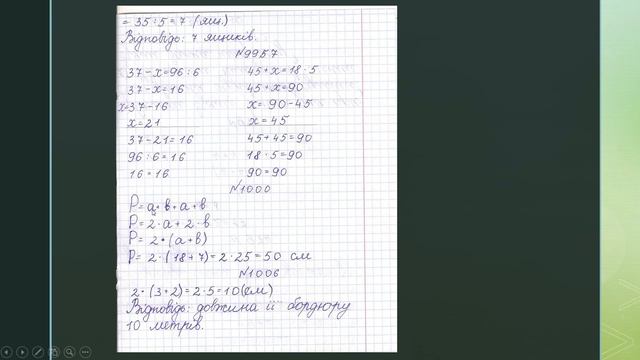 = 35 : 5 = 7 (ящ.)
Відповідь: 7 ящиків.
№995
37 - x = 96 : 6
45 + x = 18 · 5
37 - x = 16
45 + x = 90
x = 37 - 16
x = 90 - 45
x = 21
x = 45
37 - 21 = 16
45 + 45 = 90
96 : 6 = 16
18 · 5 = 90
16 = 16
90 = 90
№1000
P = a + в + a + в
P = 2 · a + 2 · в
P = 2 · (a + в)
P = 2 · (18 + 7) = 2 · 25 = 50 см
№1006
2 · (3 + 2) = 2 · 5 = 10 (см)
Відповідь: довжина її бордюру
10 метрів.